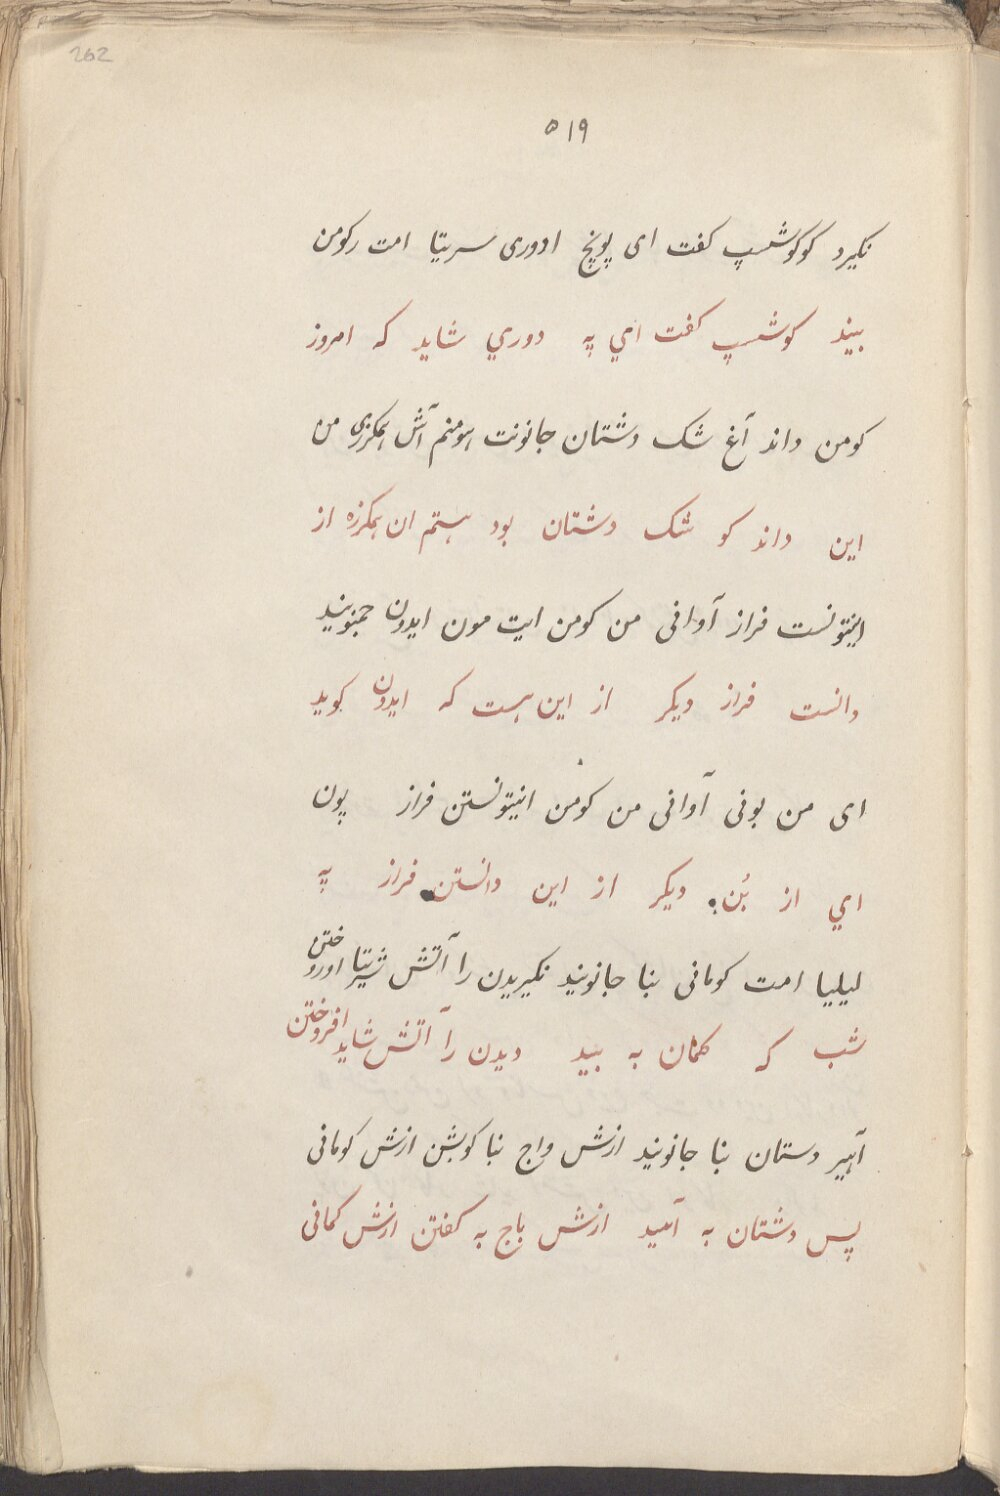 262
۵۱۹
نکیرد کوکوشسپ کفت ای پونچ ادوری سریتا امت رکومن
بیند کوشسپ کفت امي په دوري شاید که امروز
کومن داند آغ شک دشتان جانونت هومنم آش همکرزی من
این داند کو شک دشتان بود هستم ان همکرزه از
اینتونست فراز آوافی من کومن ایت مون ایدون جمنونید
دانست فراز دیکر از این هست که ایدون کوید
ای من بونی آوافی من کومن انیتونستن فراز پون
امي از بُن دیکر از این دانستن فراز په
لیلیا امت کومانی بنا جانونید نکیریدن را آتش شریتا اوروختن
شب که کلمان به بید دیدن را آتش شاید افروختن
آهیر دستان بنا جانونید ازش واج بنا کوبشن ازش کومانی
پس دشتان به آمید ازش باج به کفتن ازش کمانی